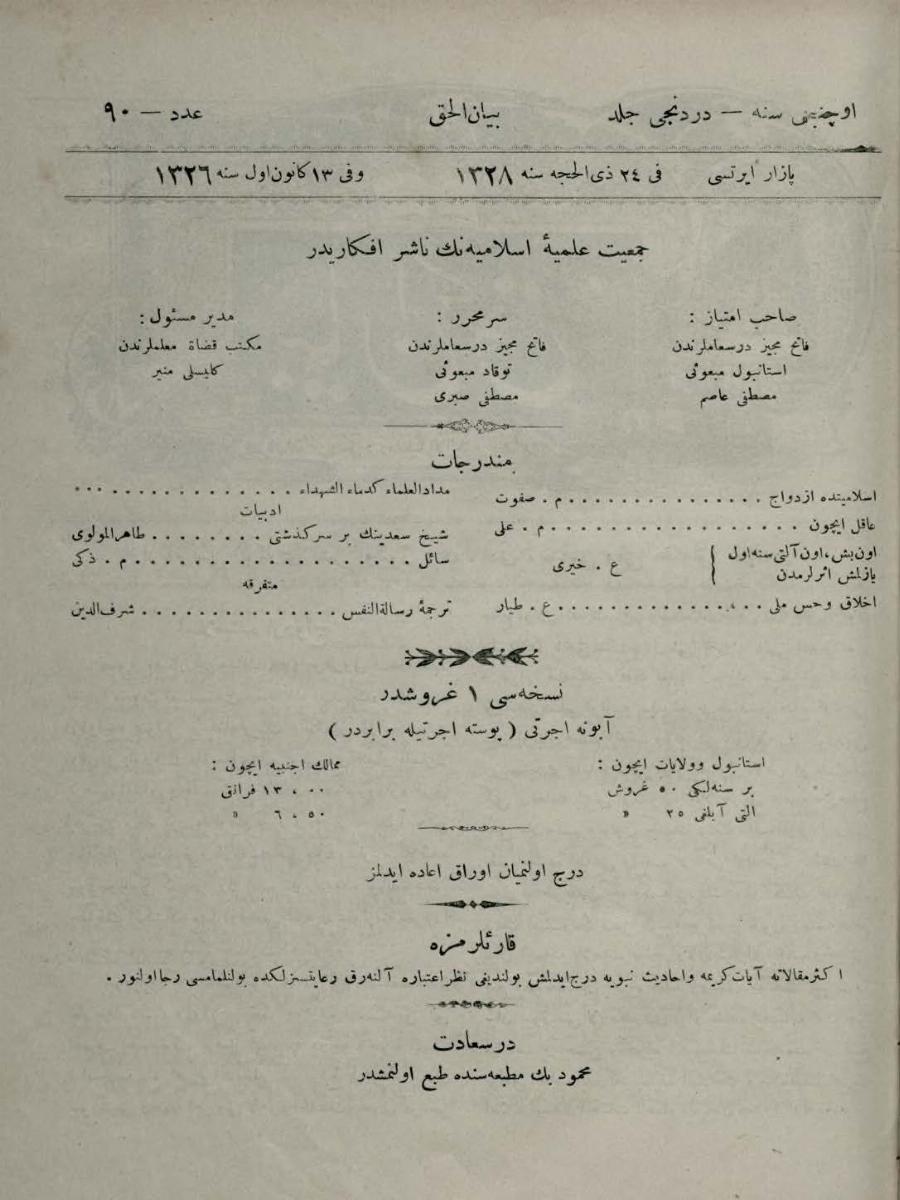 اوچنجی سنه — دردنجی جلد بیان‌الحق عدد — ۹۰
پازار ایرتسی فی ۲٤ ذی‌الحجه سنه ۱۳۲۸ وفی ۱۳ کانون‌اول سنه ۱۳۲٦
جمعیت علمیهٔ اسلامیه‌نك ناشر افکاریدر
صاحب امتیاز :
فاتح مجیز درسعاملرندن
استانبول مبعوثی
مصطفی عاصم
سرمحرر :
فاتح مجیز درسعاملرندن
توقاد مبعوثی
مصطفی صبری
مدیر مسئول :
مکتب قضاة معلملرندن
کلیسلی منیر
مندرجات
اسلامیتده ازدواج . . . . . . . . . . . . . . . م . صفوت
عاقل ایچون . . . . . . . . . . . . . . . . . م . علی
اون‌بش ، اون‌آلتی سنه‌اول
یازلمش اثرلرمدن } ع . خیری
اخلاق وحس ملی . . . . . . . . . . . . . ع . طیار
مدادالعلماء کدماء الشهداء . . . . . . . . . . . . . ...
ادبیات
شیخ سعدینك بر سرکذشتی . . . . . . . . طاهرالمولوی
سائل . . . . . . . . . . . . . . . . . . م . ذکی
متفرقه
ترجمهٔ رسالةالنفس . . . . . . . . . . . . . . شرف‌الدین
نسخه‌سی ۱ غروشدر
آبونه اجرتی ( پوسته اجرتیله برابردر )
استانبول وولایات ایچون :
بر سنه‌لکی ۵۰ غروش
التی آیلغی ۲۵ »
ممالك اجنبیه ایچون :
۱۳،۰۰ فرانق
٦،۵۰ »
درج اولنمیان اوراق اعاده ایدلمز
قارئلرمزه
اکثرمقالاته آیات‌کریمه واحادیث نبویه درج‌ایدلمش بولندیغی نظراعتباره آلنه‌رق رعایتسزلکده بولنلمامسی رجااولنور .
درسعادت
محمودبك مطبعه‌سنده طبع اولنمشدر